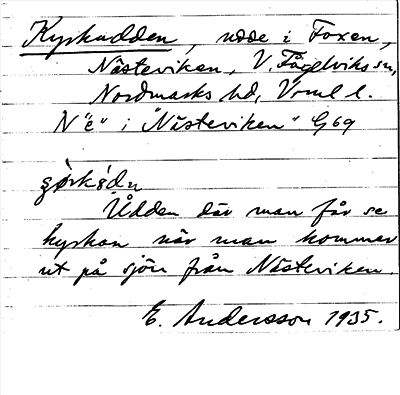 Kyrkudden, udde i Foxen,
Nästeviken, V. Fågelviks sn,
Nordmarks hd, Vrml l.
N "e" i "Nästeviken" G 69
Udden där man får se
kyrkan när man kommer
ut på sjön från Nästeviken.
E. Andersson 1935.